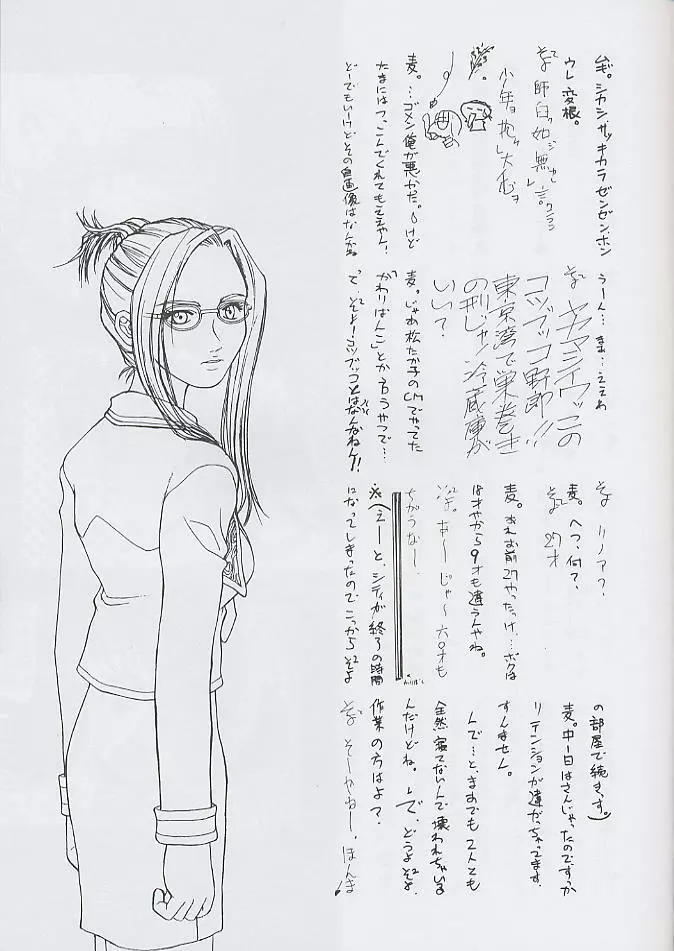 麦。シカシ、サッキカラゼンゼン、ホン
ウレ変根。
少年よ抱け大むヲ
麦。…ゴメン俺が悪かった。けど
たまにはつっこんでくれてもええやん!
どーでもいーけどその自画像はなんだ。
うーん…まぁ…ええわ
ヤマシイウッこの
コップッコ野郎!!
東京湾で巣巻き
の刑じゃ!冷蔵庫が
いい?
麦。じゃあ松たか子のCMでやってた
「かわりばんこ」とか言うやつで…
で、そよ!コップッコとはなんやねん!!
リノア?
麦。へっ、何?
27才
麦。おれお前27やったっけ…ボクは
18才やから9才も違うんやね。
あーじゃ〜六〇才も
ちがうなー、
※(えーと、シティが終了の時間
になってしまったのでこっからそよ
の部屋で続きっす。)
麦。中一日はさんじゃったのですか
リテンションが違がっちゃってます、
すんません。
んで…と、まあでも2人とも
全然寝てないんで壊われちゃいる
んだけどね。で、どうよそよ、
作業の方はよ?
そーやねー、ほんま